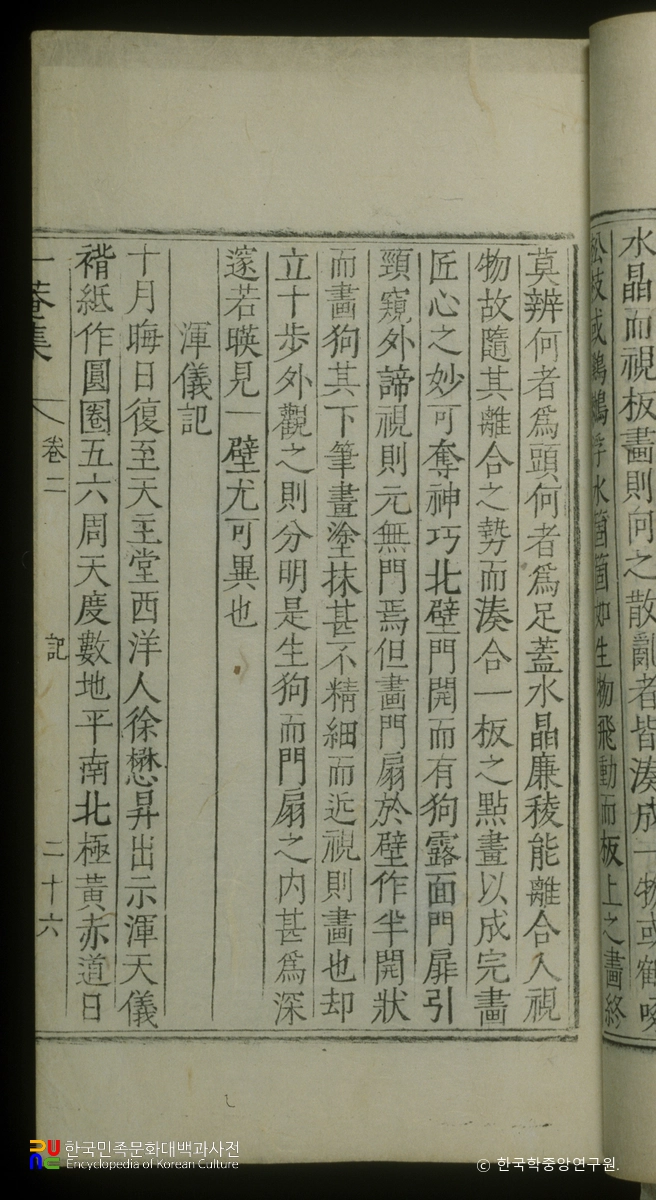 水晶而視板畫則向之散亂者皆湊成一物或鶴唳
松枝或鸂鶒浮水箇箇如生物飛動而板上之畫終
莫辨何者爲頭何者爲足蓋水晶廉稜能離合人視
物故隨其離合之勢而湊合一板之點畫以成完畫
匠心之妙可奪神巧北壁門開而有狗露面門扉引
頸窺外諦視則元無門焉但畫門扇於壁作半開狀
而畫狗其下筆畫塗抹甚不精細而近視則畫也却
立十步外觀之則分明是生狗而門扇之内甚爲深
邃若暎見一壁尤可異也
渾儀記
十月晦日復至天主堂西洋人徐懋昇出示渾天儀
褙紙作圓圈五六周天度數地平南北極黃赤道日
一菴集 卷二 記 二十六
한국민족문화대백과사전
Encyclopedia of Korean Culture
© 한국학중앙연구원.